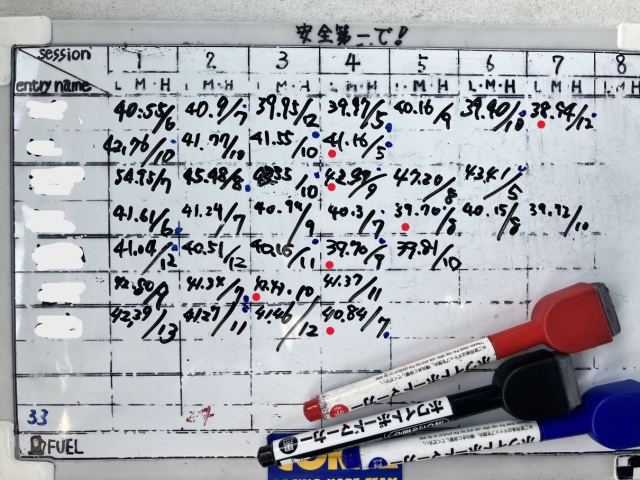 安全第一で!
session 1 2 3 4 5 6 7 8
entry name L M・H L M・H L M・H L M・H L M・H L M・H L M・H L M H
40.55/6 40.9/7 39.95/12 39.97/5 40.16/9 39.90/10 38.94/12
42.76/10 41.77/10 41.55/10 41.16/5
54.95/7 45.48/8 /10 42.99/9 47.20/8 43.41/5
41.61/6 41.24/7 40.99/9 40.3/7 39.70/8 40.15/8 39.72/10
41.04/12 40.51/12 40.16/11 39.70/9 39.81/10
42.50/ 41.34/7 .10 41.37/11
42.39/13 41.27/11 41.46/12 40.84/7
33
FUEL
ホワイトボードマーカー
ホワイトボードマーカー
ホワイトボードマーカー